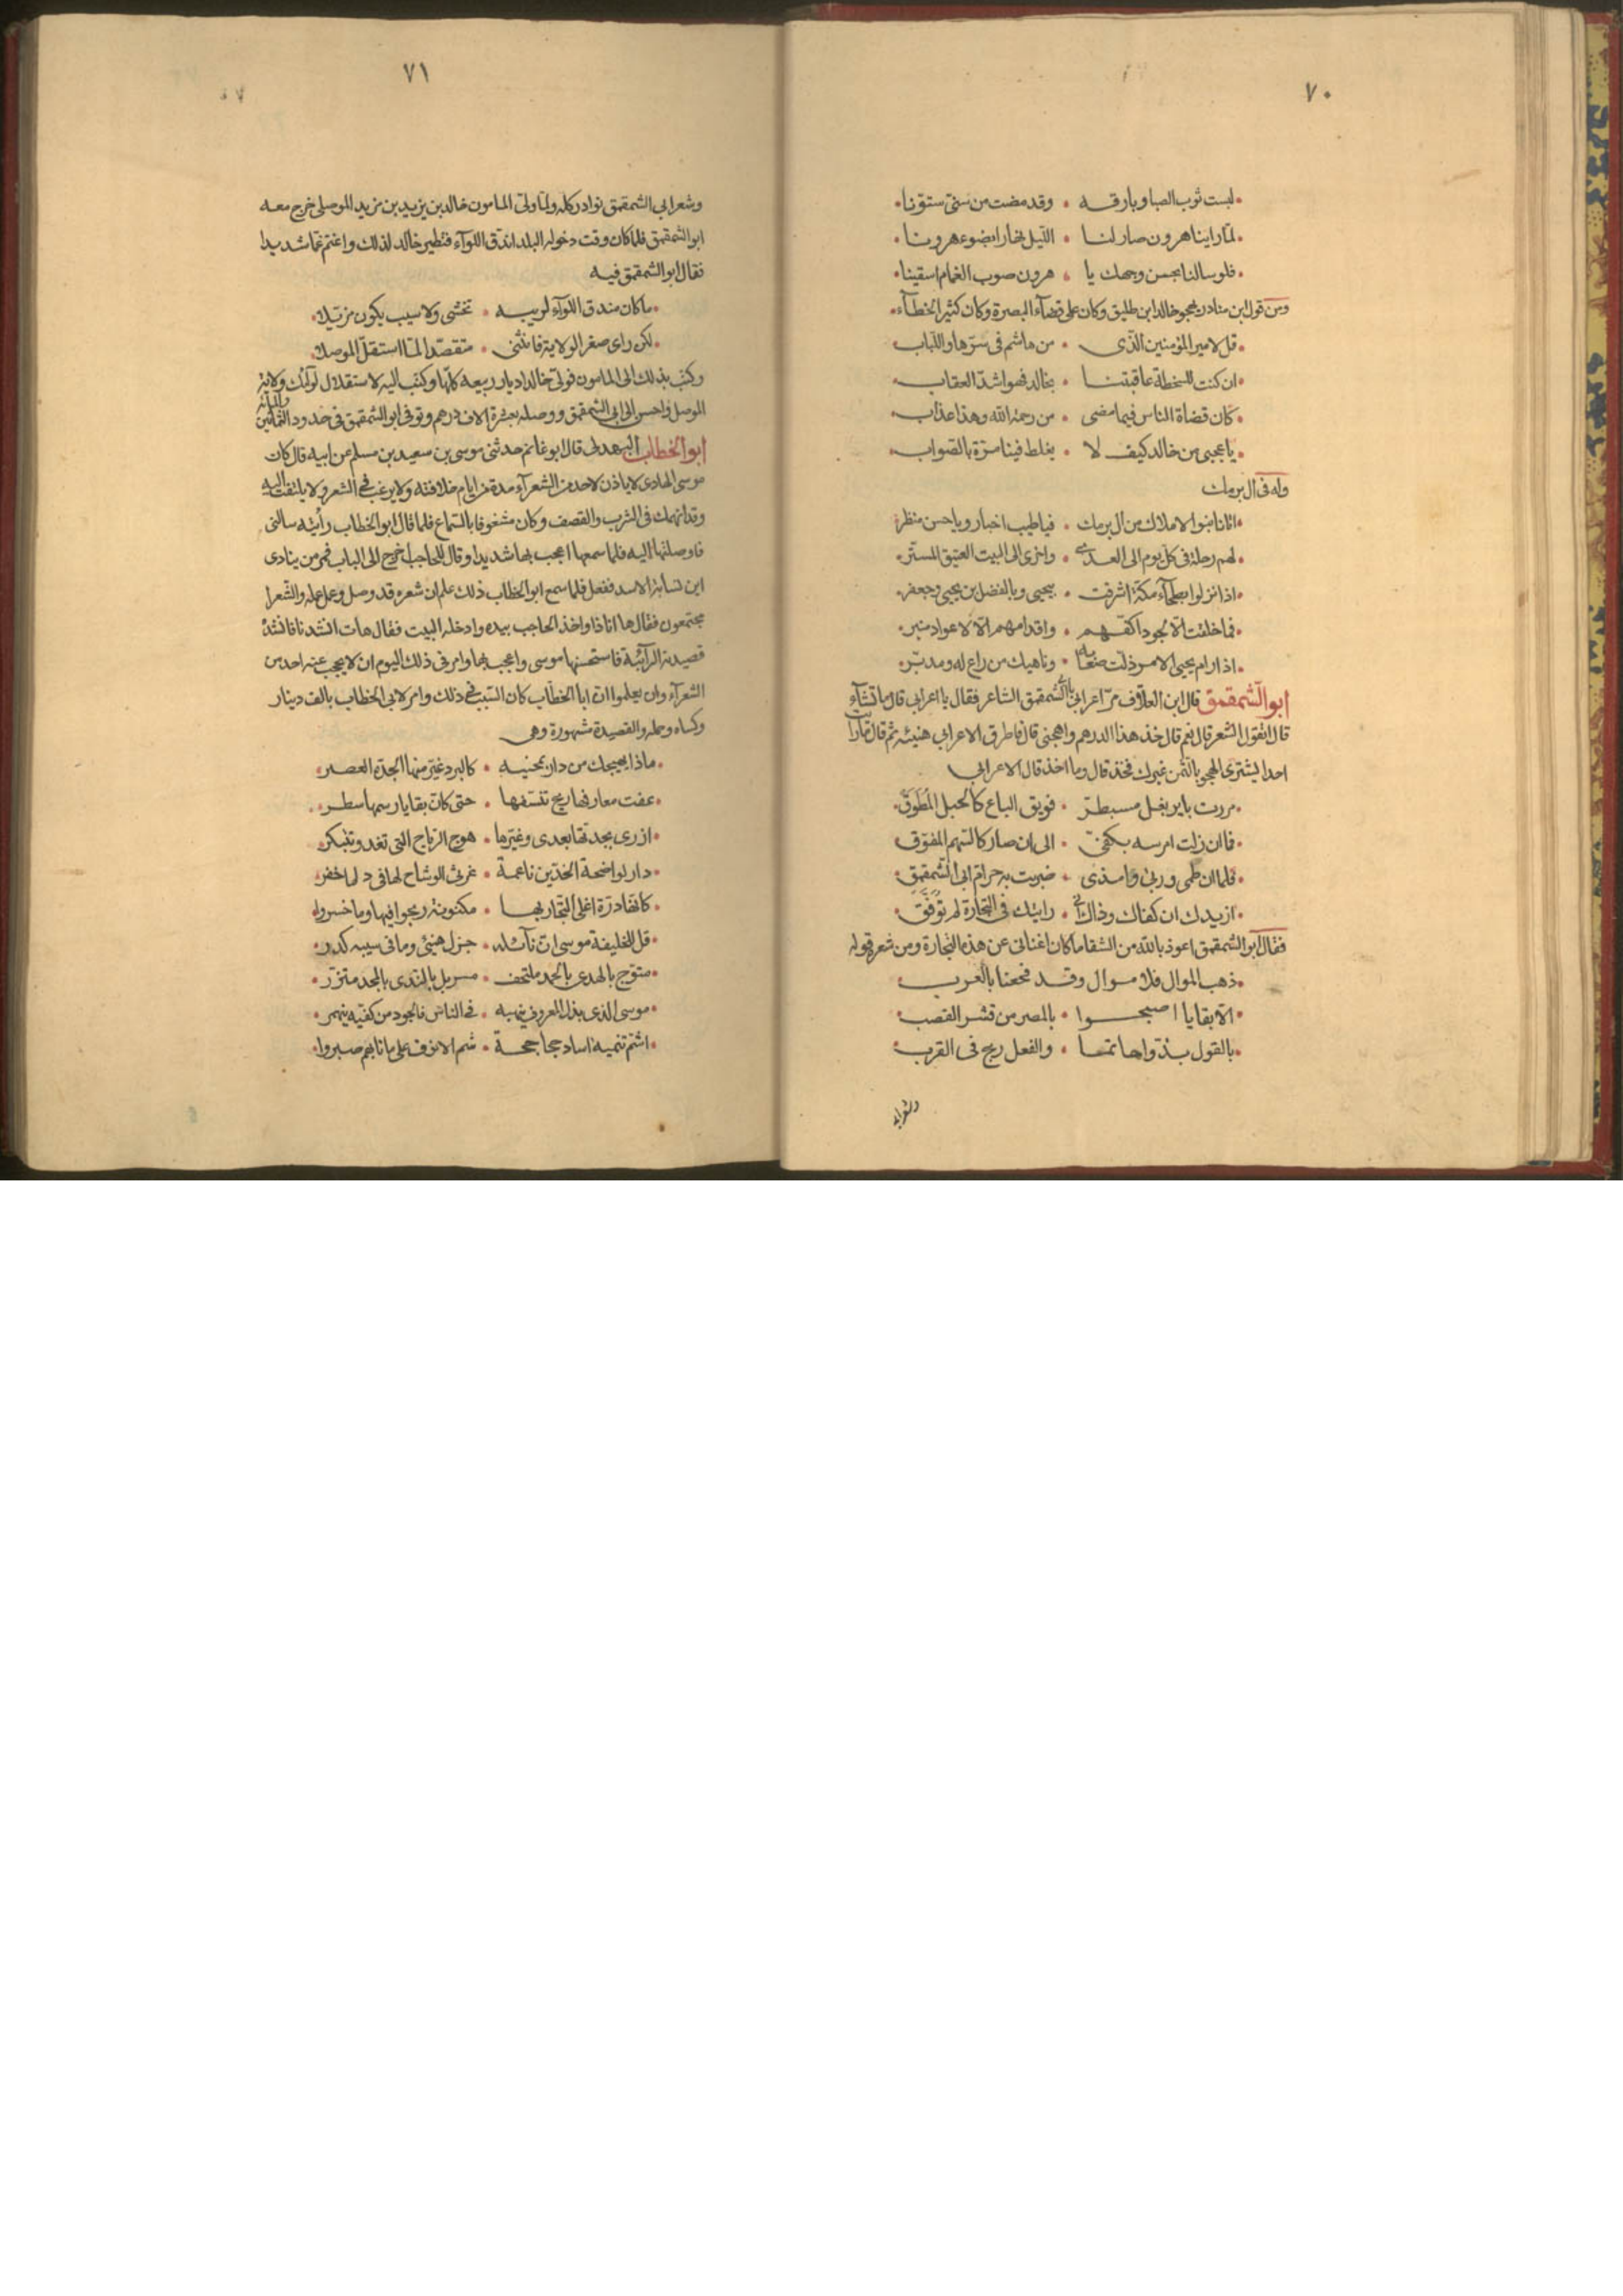 ٧٠
لبست ثوب الصبا وبارقه • وقد مضت من سنى ستونا
لما راينا هرون صار لنا • الليل نهارا بضوء هرونا
فلو سالنا بحسن وجهك يا • هرون صوب الغمام اسقينا
ومن قول ابن مناذر يهجو خالد ابن طليق وكان على قضآء البصرة وكان كثير الخطآء
قل لامير المؤمنين الذى • من هاشم فى سرها واللباب
ان كنت للسخطة عاقبتنا • بخالد فهو اشد العقاب
كان قضاة الناس فيما مضى • من رحمة الله وهذا عذاب
يا عجبى من خالد كيف لا • يغلط فينا مرة بالصواب
وله فى ال برمك
اتانا بنوا الاملاك من آل برمك • فيا طيب اخبار ويا حسن منظر
لهم رحلة فى كل يوم الى العدى • واخرى الى البيت العتيق المستر
اذا نزلوا بطحآء مكة اشرقت • بيحيى وبالفضل بن يحيى وجعفر
فما خلقت الا لجود اكفهم • واقدامهم الا لاعواد منبر
اذا رام يحيى الامر ذلت صعابه • وناهيك من راع له ومدبر
ابو الشمقمق قال ابن العلاف مر اعرابى بابى الشمقمق الشاعر فقال يا اعرابى قال ما تشآء
قال اتقول الشعر قال نعم قال خذ هذا الدرهم واهجنى قال فاطرق الاعرابى هنيئه ثم قال ما رايت
احدا يشترى الهجو بالثمن غيرك فخذ قال وما اخذ قال الاعرابى
مررت باير بغل مسبطر • فويق الباع كالحبل المطوق
فما ان زلت امرسه بكفى • الى ان صار كالسهم المفوق
فلما ان طمى وربى وامذى • ضربت به حرام ابى الشمقمق
ازيدك ان كفاك وذاك انى • رايتك فى التجارة لم توفق
فقال ابو الشمقمق اعوذ بالله من الشقا ما كان اغنانى عن هذه التجارة ومن شعره قوله
ذهب الموال فلا موال وقد فجعنا بالعرب
الا بقايا اصبحوا • بالمصر من قشر القصب
بالقول بذوا حاتما • والفعل ريح فى القرب
وشعر ابى
٧١
وشعر ابى الشمقمق نوادر كله ولما ولى المامون خالد بن يزيد بن مزيد الموصلى خرج معه
ابو الشمقمق فلما كان وقت دخوله البلد اندق اللوآء فتطير خالد لذلك واغتم غما شديدا
فقال ابو الشمقمق فيه
ما كان مندق اللوآء لريبه • تخشى ولا سبب يكون مزيلا
لكن راى صغر الولاية فانثنى • متقصدا لما استقل الموصلا
وكتب بذلك الى المامون فولى خالدا ديار ربيعه كلها وكتب اليه لاستقلال لوآئك ولاية
الموصل فاحسن الى ابى الشمقمق ووصله بعشرة الاف درهم وتوفى ابو الشمقمق فى حدود الثمانين والمايه
ابو الخطاب البهدلى قال ابو غانم حدثنى موسى بن سعيد بن مسلم عن ابيه قال كان
موسى الهادى لا ياذن لاحد من الشعرآء مدة من ايام خلافته ولا يرغب فى الشعر ولا يلتفت اليه
وقد انهمك فى الشرب والقصف وكان مشغوفا بالسماع فلما قال ابو الخطاب رأيته سالنى
فاوصلتها اليه فلما سمعها اعجب بها شديدا وقال للحاجب اخرج الى الباب فمر من ينادى
اين نسابة الاسد ففعل فلما سمع ابو الخطاب ذلك علم ان شعره قد وصل وعمل عمله والشعرا
مجتمعون فقال ها انا ذا واخذ الحاجب بيده وادخله البيت فقال هات انشدنا فانشده
قصيدته الرآئية فاستحسنها موسى واعجب بها وامر فى ذلك اليوم ان لا يحجب عنه احد من
الشعرآء وان يعلموا ان ابا الخطاب كان السبب فى ذلك وامر لابى الخطاب بالف دينار
وكساه وحمله والقصيدة مشهورة وهى
ماذا يهيجك من دار بمحنيه • كالبرد غير منها الجدة العصر
عفت معارفها ريح تنسفها • حتى كان بقايا رسمها سطر
ازرى بجدتها بعدى وغيرها • هوج الرياح التى تغدو وتبتكر
دار لواضحة الخدين ناعمة • غرثى الوشاح لها فى دلها خفر
كانها درة اغلى التجار بها • مكنونة ربحوا فيها وما خسروا
قل للخليفة موسى ان نآئله • جزل هنيئ وما فى سيبه كدر
متوج بالهدى بالحمد ملتحف • مسربل بالندى بالمجد متزر
موسى الذى بذل المعروف ينهبه • فى الناس فالجود من كفيه ينهمر
اشم تنميه اساد جحاجحة • شم الانوف على ما نابهم صبروا